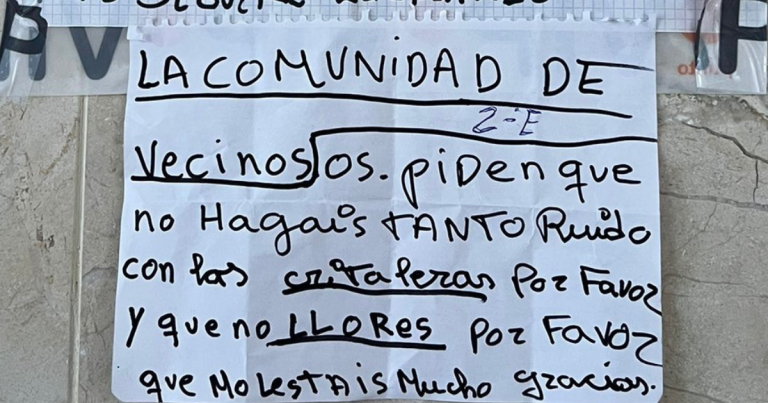 LA COMUNIDAD DE
2-E
Vecinos os. piDen que
no Hagais tANTO Ruido
con las cristaleras Por Favor
y que no LLORes Por Favor
que MolestAis Mucho gracias.